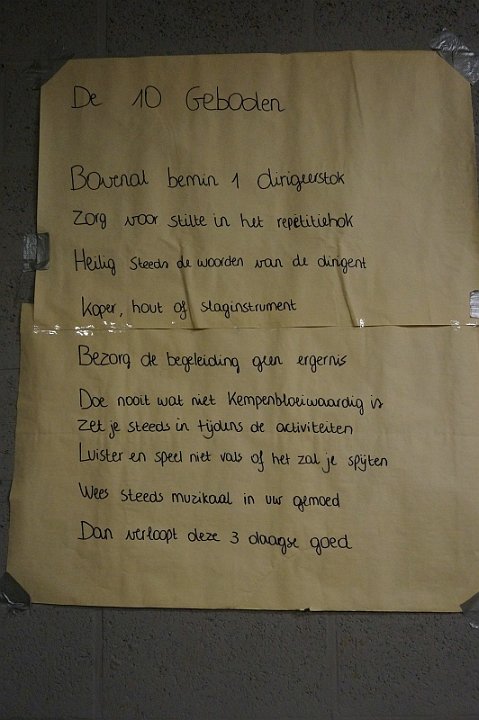 De 10 Geboden
Bovenal bemin 1 dirigeerstok
Zorg voor stilte in het repetitiehok
Heilig steeds de woorden van de dirigent
Koper, hout of slaginstrument
Bezorg de begeleiding geen ergernis
Doe nooit wat niet Kempenbloeiwaardig is
Zet je steeds in tijdens de activiteiten
Luister en speel niet vals of het zal je spijten
Wees steeds muzikaal in uw gemoed
Dan verloopt deze 3 daagse goed